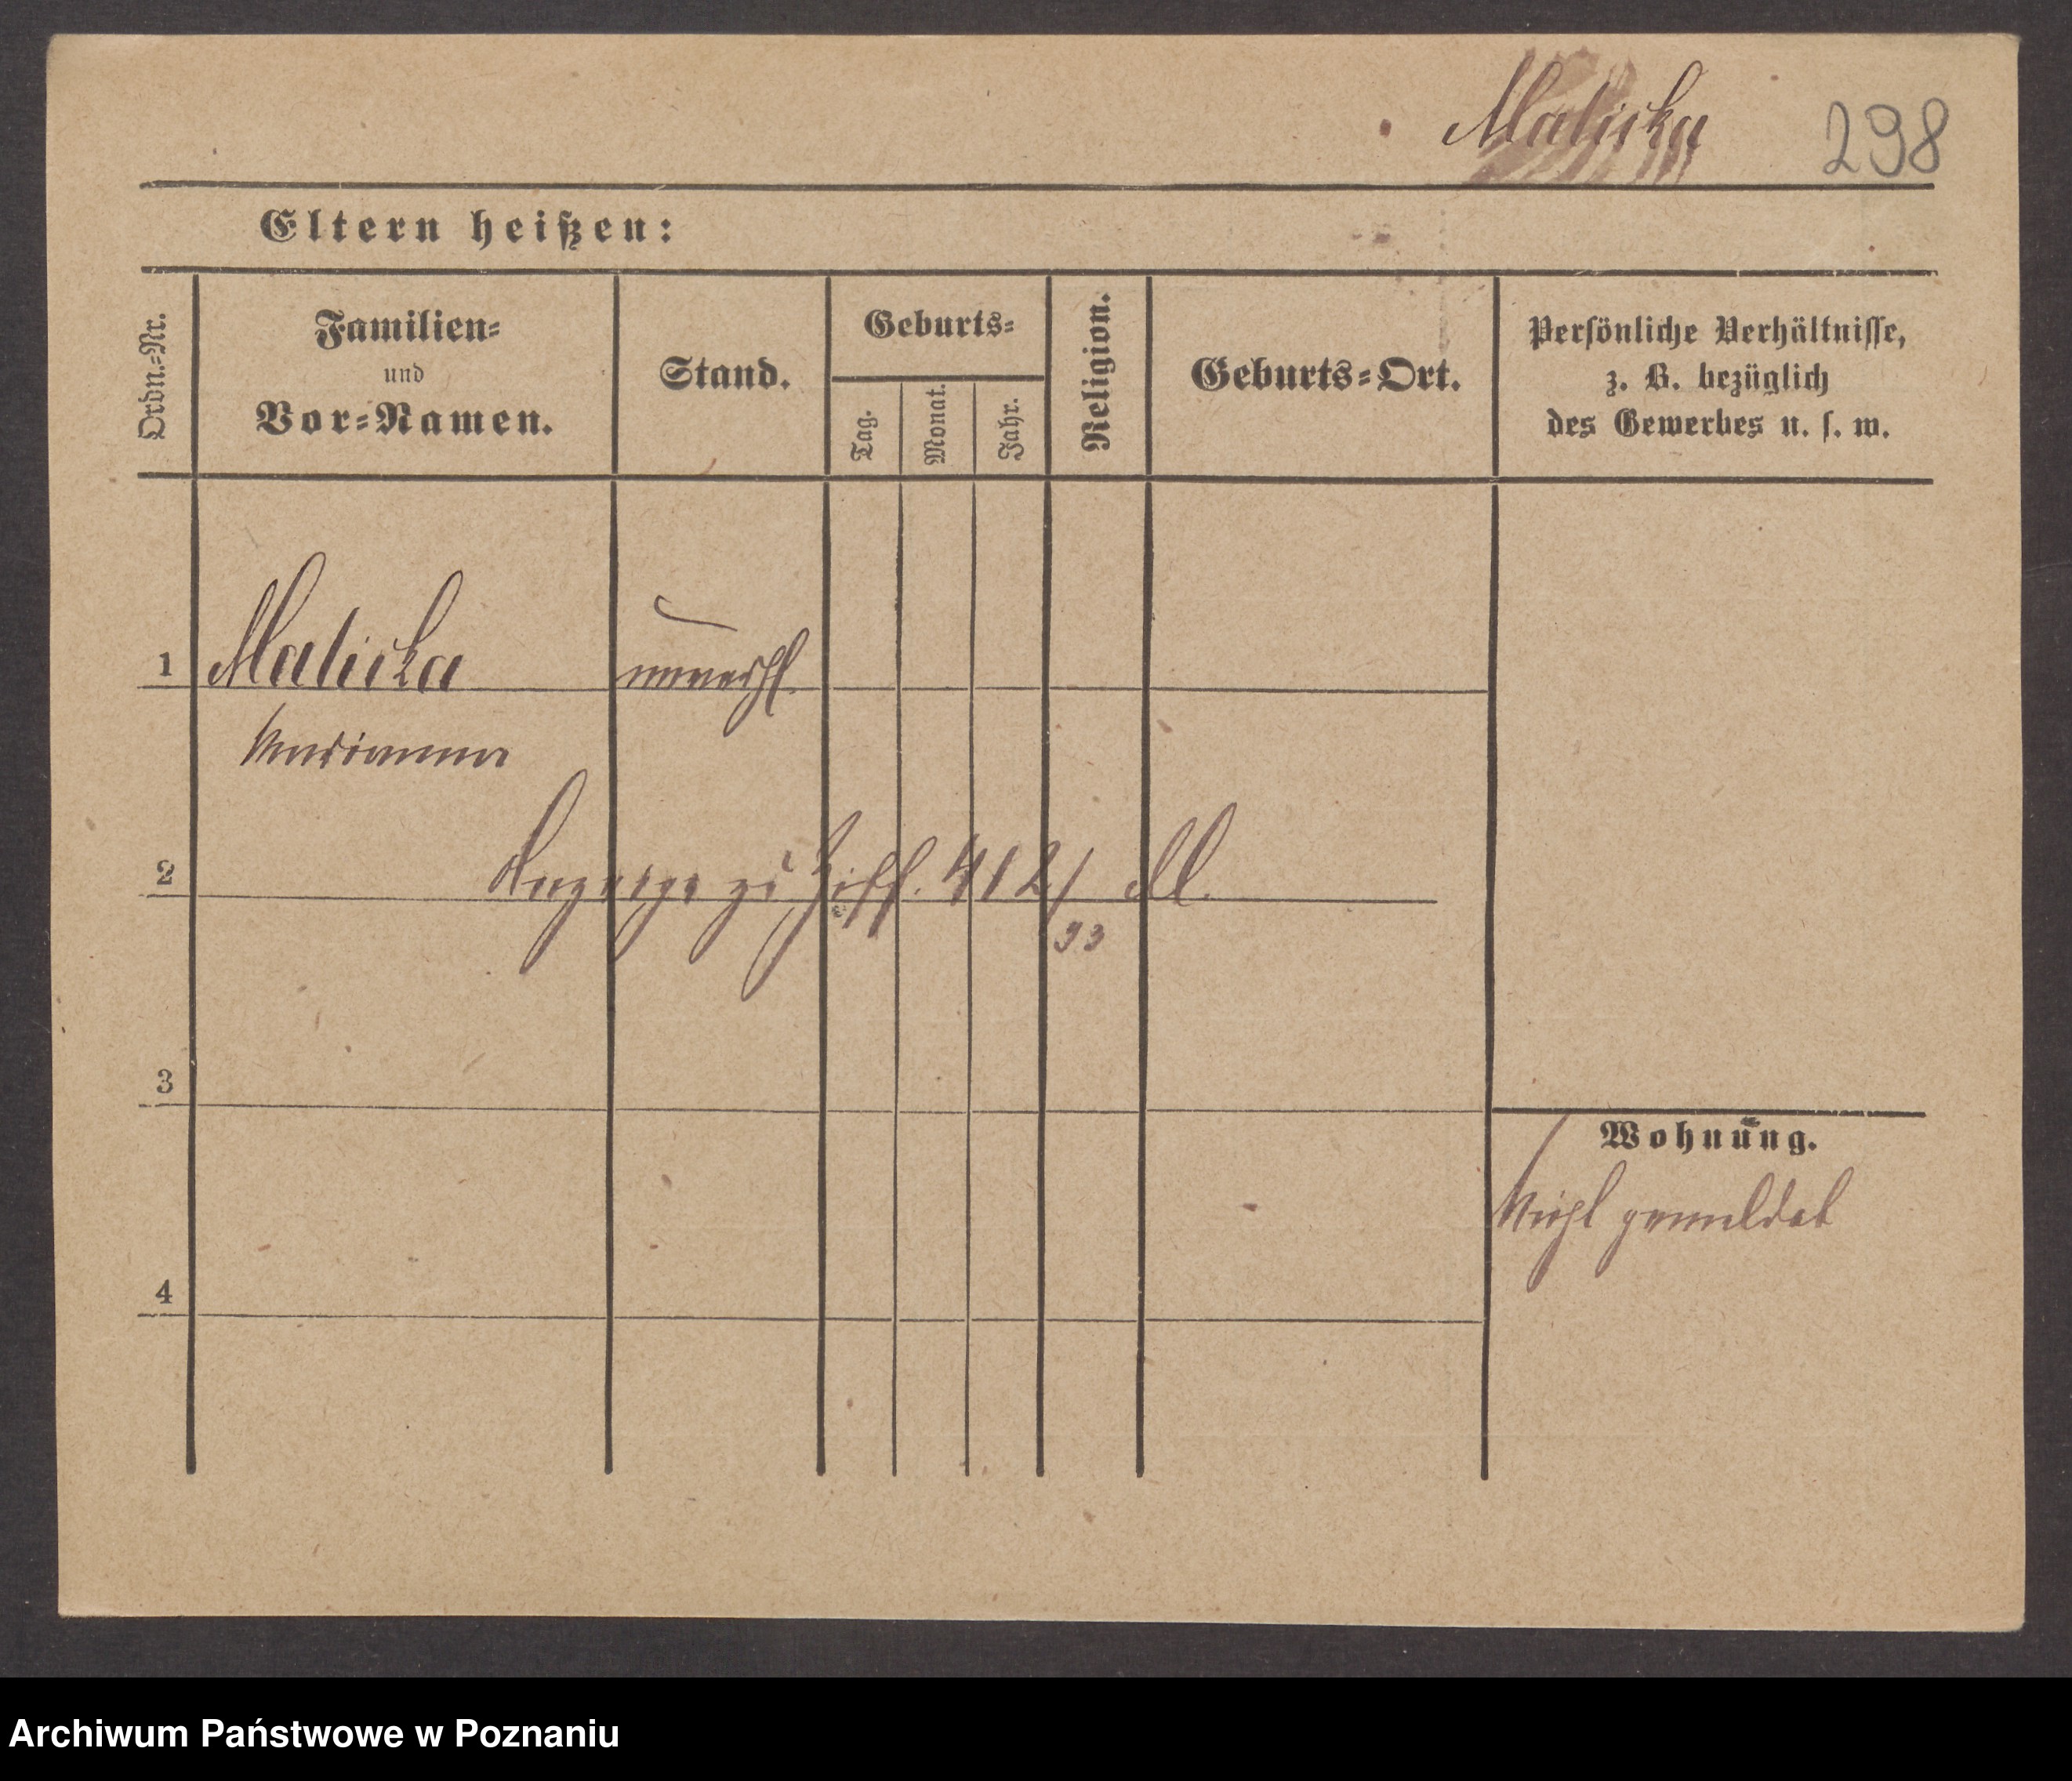 Malicka 298
Eltern heißen:
Ordn.-Nr.
Familien-
und
Vor-Namen.
Stand.
Geburts-
Tag.
Monat.
Jahr.
Religion.
Geburts-Ort.
Persönliche Verhältnisse,
z. B. bezüglich
des Gewerbes u. s. w.
1 Malicka unverhl.
Marianna
2 Anzeige zu Ziff. 412/93 M.
3
Wohnung.
Nicht gemeldet
4
Archiwum Państwowe w Poznaniu